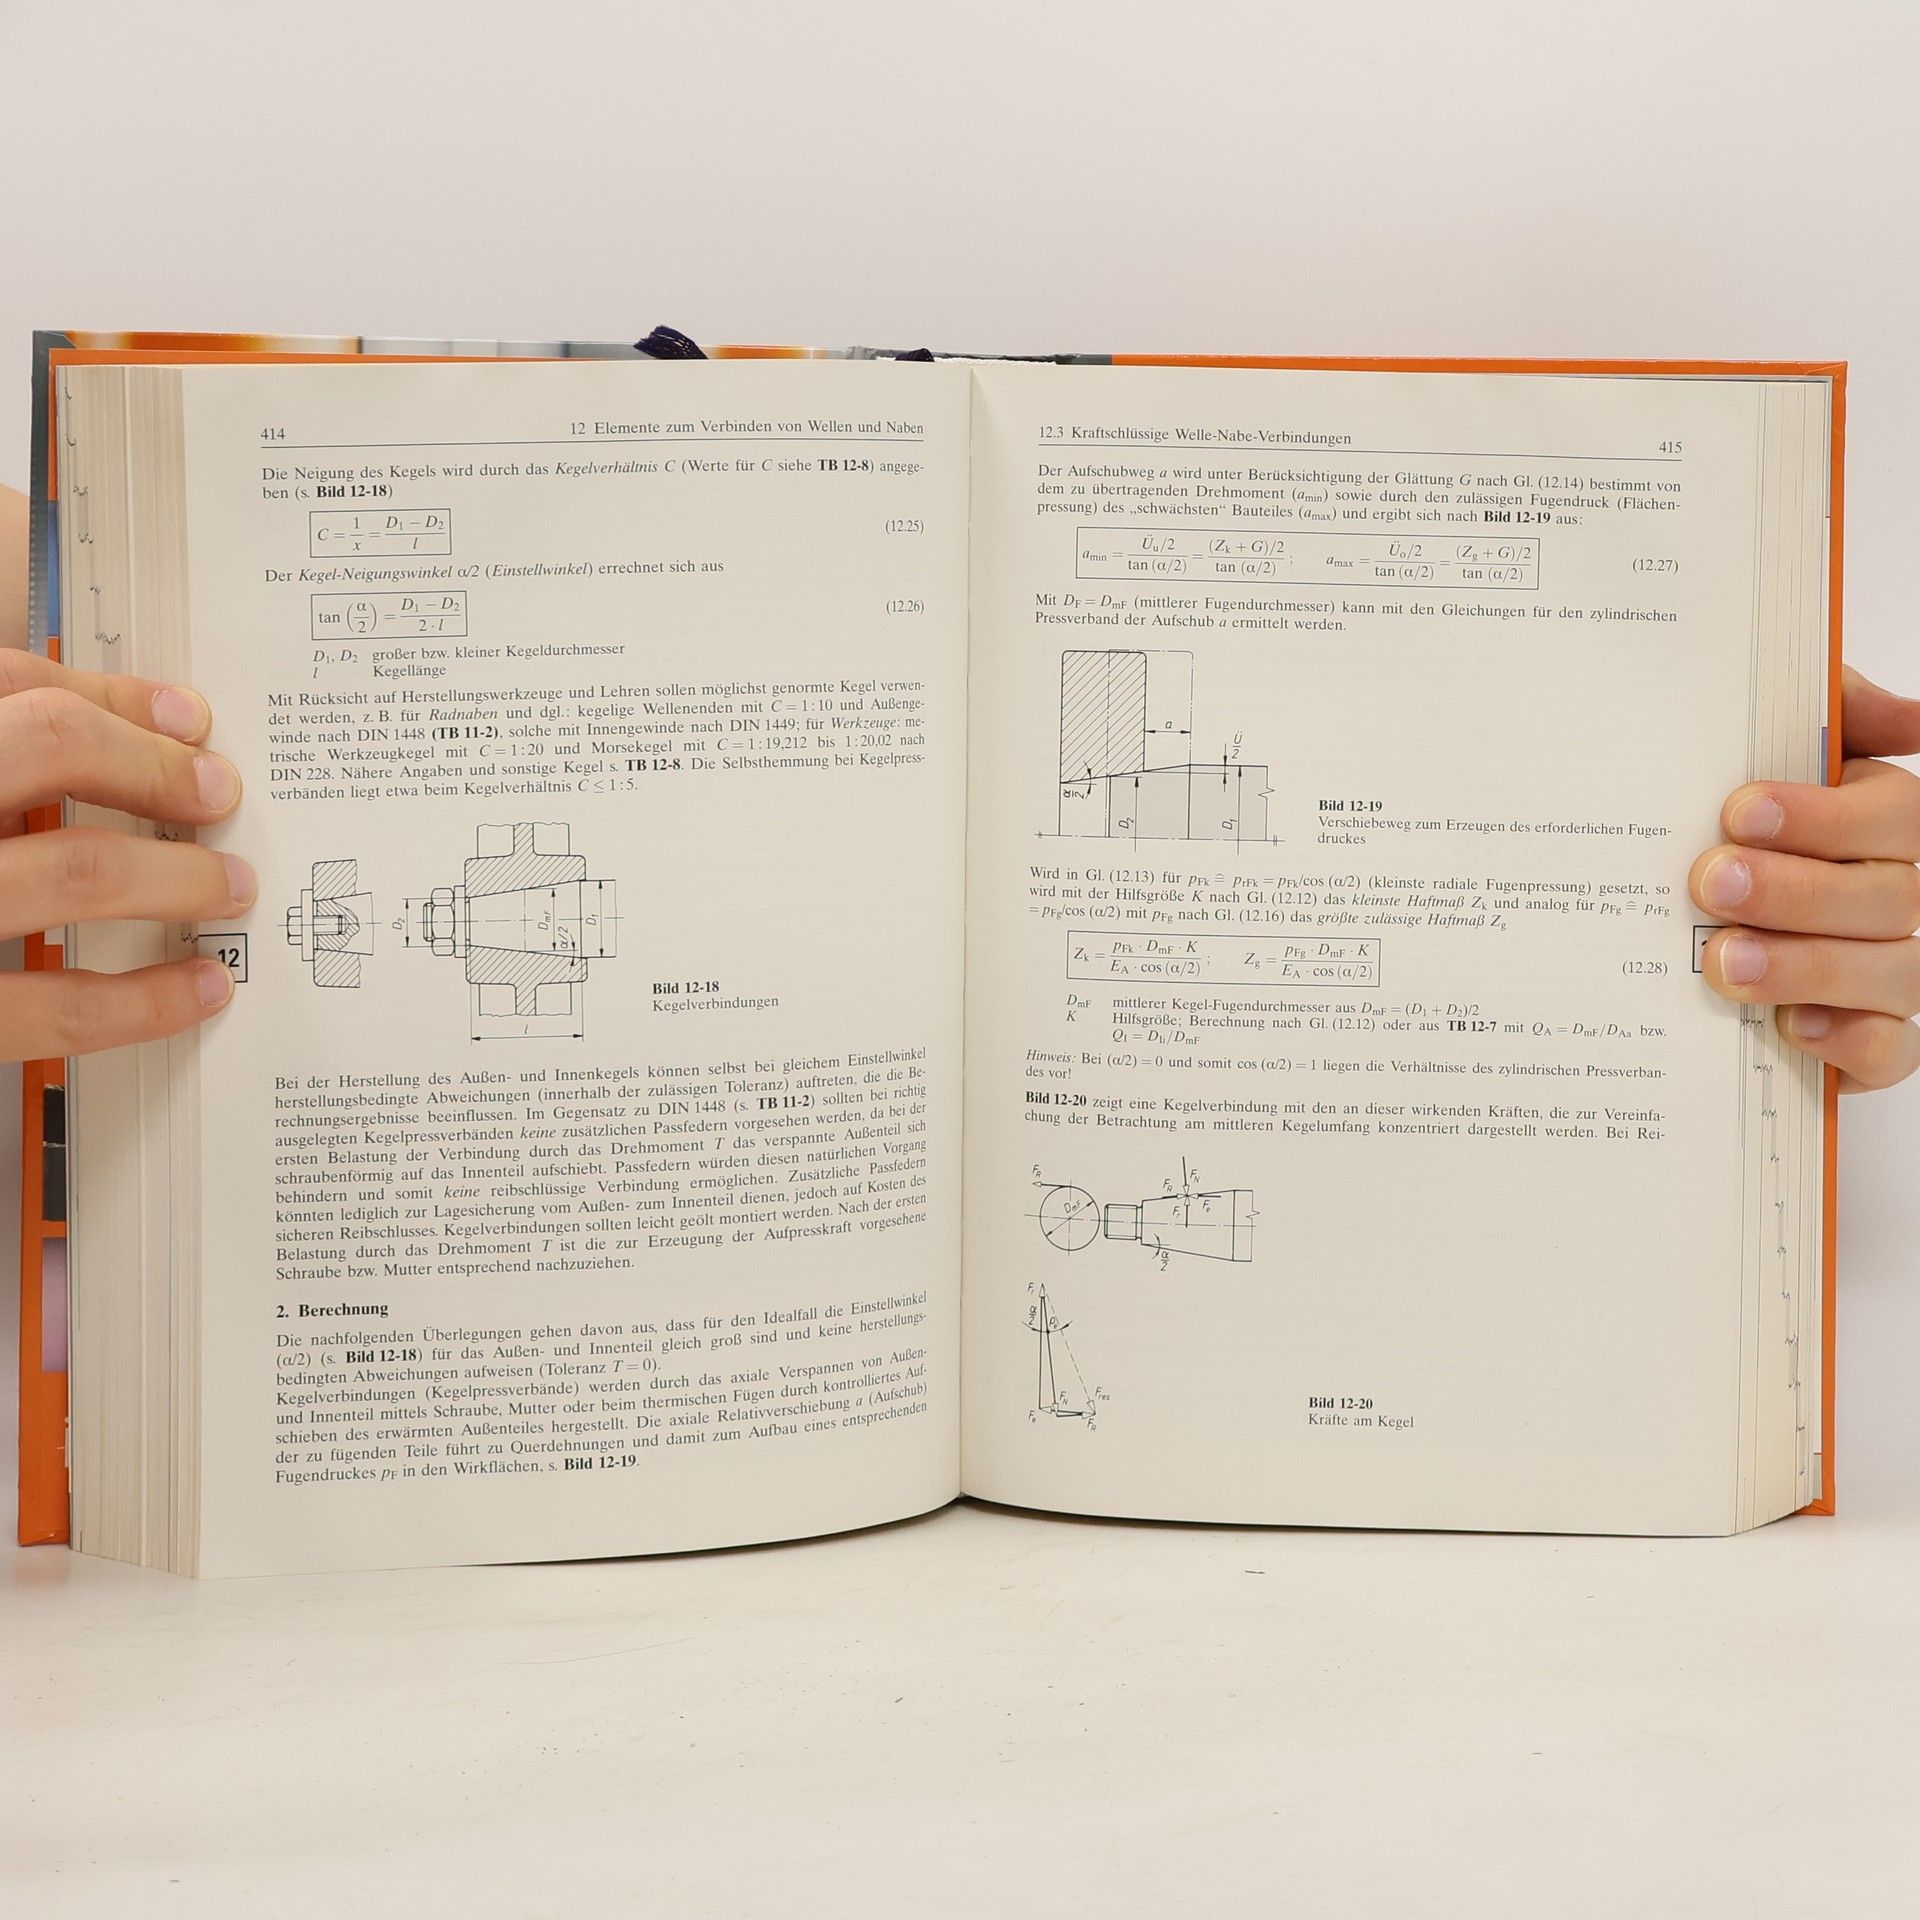 414
12 Elemente zum Verbinden von Wellen und Naben
Die Neigung des Kegels wird durch das Kegelverhältnis C (Werte für C siehe TB 12-8) angege-
ben (s. Bild 12-18)
C = 1/x = (D₁ − D₂)/l (12.25)
Der Kegel-Neigungswinkel α/2 (Einstellwinkel) errechnet sich aus
tan (α/2) = (D₁ − D₂)/(2 · l) (12.26)
D₁, D₂ großer bzw. kleiner Kegeldurchmesser
l Kegellänge
Mit Rücksicht auf Herstellungswerkzeuge und Lehren sollen möglichst genormte Kegel verwen-
det werden, z. B. für Radnaben und dgl.: kegelige Wellenenden mit C = 1:10 und Außenge-
winde nach DIN 1448 (TB 11-2), solche mit Innengewinde nach DIN 1449; für Werkzeuge: me-
trische Werkzeugkegel mit C = 1:20 und Morsekegel mit C = 1:19,212 bis 1:20,02 nach
DIN 228. Nähere Angaben und sonstige Kegel s. TB 12-8. Die Selbsthemmung bei Kegelpress-
verbänden liegt etwa beim Kegelverhältnis C ≤ 1:5.
D₂
DmF
α/2
D₁
l
12
Bild 12-18
Kegelverbindungen
Bei der Herstellung des Außen- und Innenkegels können selbst bei gleichem Einstellwinkel
herstellungsbedingte Abweichungen (innerhalb der zulässigen Toleranz) auftreten, die die Be-
rechnungsergebnisse beeinflussen. Im Gegensatz zu DIN 1448 (s. TB 11-2) sollten bei richtig
ausgelegten Kegelpressverbänden keine zusätzlichen Passfedern vorgesehen werden, da bei der
ersten Belastung der Verbindung durch das Drehmoment T das verspannte Außenteil sich
schraubenförmig auf das Innenteil aufschiebt. Passfedern würden diesen natürlichen Vorgang
behindern und somit keine reibschlüssige Verbindung ermöglichen. Zusätzliche Passfedern
könnten lediglich zur Lagesicherung vom Außen- zum Innenteil dienen, jedoch auf Kosten des
sicheren Reibschlusses. Kegelverbindungen sollten leicht geölt montiert werden. Nach der ersten
Belastung durch das Drehmoment T ist die zur Erzeugung der Aufpresskraft vorgesehene
Schraube bzw. Mutter entsprechend nachzuziehen.
2. Berechnung
Die nachfolgenden Überlegungen gehen davon aus, dass für den Idealfall die Einstellwinkel
(α/2) (s. Bild 12-18) für das Außen- und Innenteil gleich groß sind und keine herstellungs-
bedingten Abweichungen aufweisen (Toleranz T = 0).
Kegelverbindungen (Kegelpressverbände) werden durch das axiale Verspannen von Außen-
und Innenteil mittels Schraube, Mutter oder beim thermischen Fügen durch kontrolliertes Auf-
schieben des erwärmten Außenteiles hergestellt. Die axiale Relativverschiebung a (Aufschub)
der zu fügenden Teile führt zu Querdehnungen und damit zum Aufbau eines entsprechenden
Fugendruckes pF in den Wirkflächen, s. Bild 12-19.
12.3 Kraftschlüssige Welle-Nabe-Verbindungen
415
Der Aufschubweg a wird unter Berücksichtigung der Glättung G nach Gl. (12.14) bestimmt von
dem zu übertragenden Drehmoment (amin) sowie durch den zulässigen Fugendruck (Flächen-
pressung) des „schwächsten“ Bauteiles (amax) und ergibt sich nach Bild 12-19 aus:
amin = (Üu/2)/(tan (α/2)) = ((Zk + G)/2)/(tan (α/2)) ; amax = (Üo/2)/(tan (α/2)) = ((Zg + G)/2)/(tan (α/2)) (12.27)
Mit DF = DmF (mittlerer Fugendurchmesser) kann mit den Gleichungen für den zylindrischen
Pressverband der Aufschub a ermittelt werden.
a
Ü/2
α/2
D₂
D₁
Bild 12-19
Verschiebeweg zum Erzeugen des erforderlichen Fugen-
druckes
Wird in Gl. (12.13) für pFk ≙ prFk = pFk/cos (α/2) (kleinste radiale Fugenpressung) gesetzt, so
wird mit der Hilfsgröße K nach Gl. (12.12) das kleinste Haftmaß Zk und analog für pFg ≙ prFg
= pFg/cos (α/2) mit pFg nach Gl. (12.16) das größte zulässige Haftmaß Zg
Zk = (pFk · DmF · K)/(EA · cos (α/2)) ; Zg = (pFg · DmF · K)/(EA · cos (α/2)) (12.28)
DmF mittlerer Kegel-Fugendurchmesser aus DmF = (D₁ + D₂)/2
K Hilfsgröße; Berechnung nach Gl. (12.12) oder aus TB 12-7 mit QA = DmF/DAa bzw.
QI = DIi/DmF
Hinweis: Bei (α/2) = 0 und somit cos (α/2) = 1 liegen die Verhältnisse des zylindrischen Pressverban-
des vor!
Bild 12-20 zeigt eine Kegelverbindung mit den an dieser wirkenden Kräften, die zur Vereinfa-
chung der Betrachtung am mittleren Kegelumfang konzentriert dargestellt werden. Bei Rei-
FR
DmF
FR
FN
Fr
Fe
α/2
Fr
α/2
ρe
Fe
FN
Fres
FR
Bild 12-20
Kräfte am Kegel